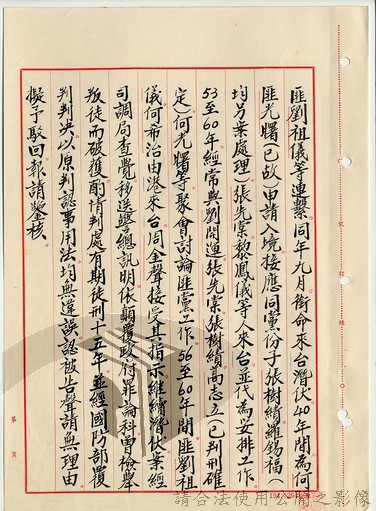 匪劉祖儀等連繫同年九月銜命來台潛伏40年間為何
匪光曙(已故)申請入境接應同黨份子張樹績羅錫福(
均另案處理)張先棠黎鳳儀等人來台並代為安排工作
53至60年經常與劉開運張先棠張樹績萬志立(已判刑確
定)何光曙等聚會討論匪黨工作56至60年間匪劉祖
儀何希治由港來台周金聲接受其指示繼續潛伏案經
司調局查覺移送警總訊明依顛覆政府罪論科曾檢舉
叛徒而破獲酌情判處有期徒刑十五年並經國防部覆
判判決以原判認事用法均無違誤認被告聲請無理由
擬予駁回報請鑒核
裝訂線
第 頁
請合法使用公開之影像